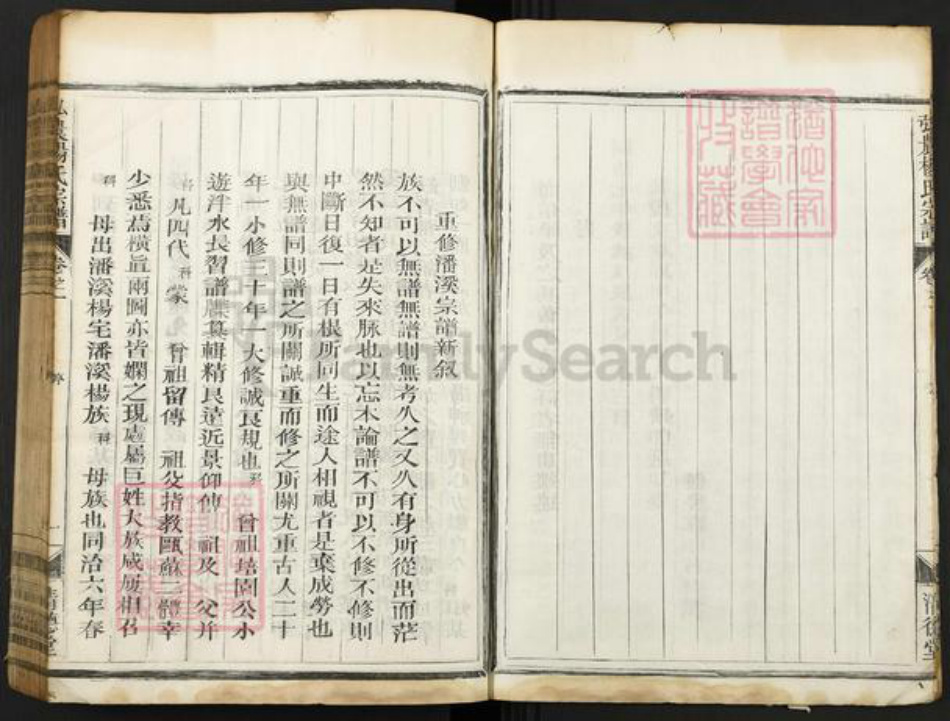 弘農楊氏宗譜
卷之一
清德堂
重修潘溪宗譜新叙
族不可以無譜無譜則無考久之又久有身所從出而茫
然不知者是失來脉也以忘本論譜不可以不修不修則
中斷日復一日有根所同生而途人相視者是棄成勞也
與無譜同則譜之所關誠重而修之所關尤重古人二十
年一小修三十年一大修誠良規也科 曾祖培園公小
遊泮水長習譜牒纂輯精良遠近景仰傳 祖及 父并
科凡四代科蒙 曾祖留傳 祖父指教歐蘇二體幸
少悉焉橫直兩圖亦皆嫻之現處屬巨姓大族咸屢相召
科 母出潘溪楊宅潘溪楊族科 母族也同治六年春
FamilySearch